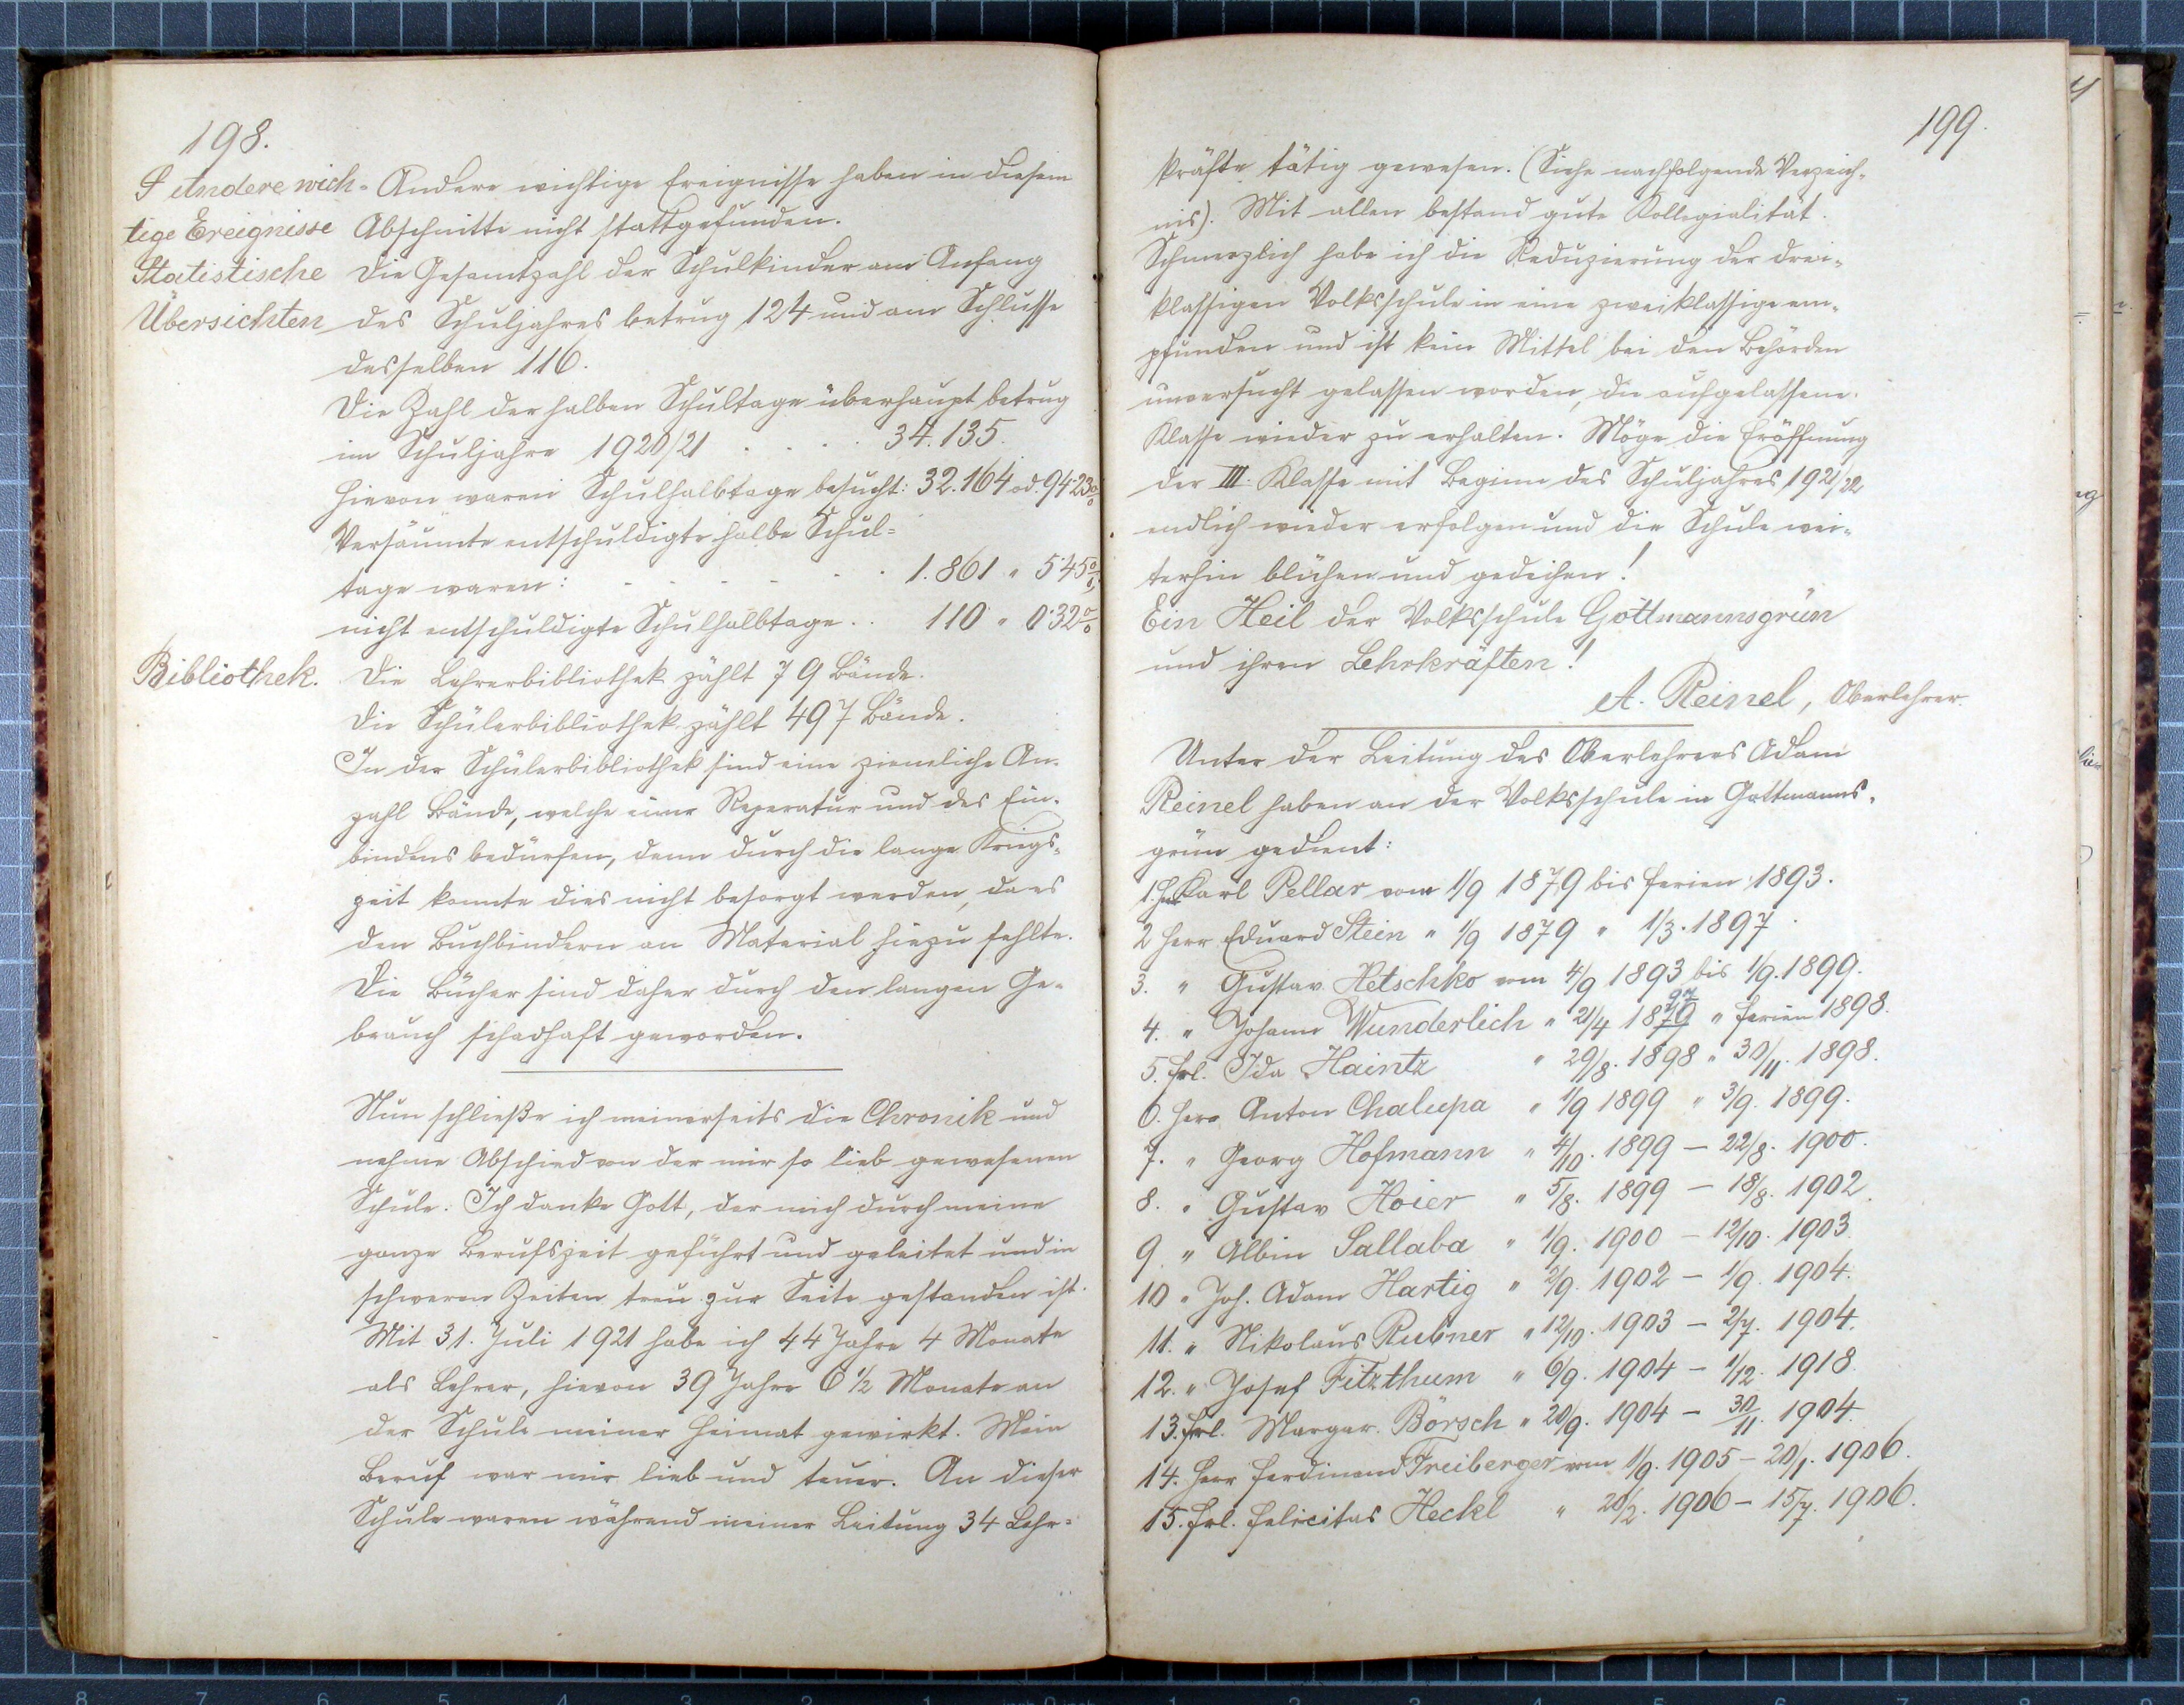 198.
I Andere wich- Andere wichtige Ereignisse haben in diesem
tige Ereignisse Abschnitte nicht stattgefunden.
Statistische Die Gesamtzahl der Schulkinder am Anfang
Übersichten des Schuljahres betrug 124 und am Schlusse
desselben 116.
Die Zahl der halben Schultage überhaupt betrug
im Schuljahre 1920/21 . . . . 34.135.
hievon waren Schulhalbtage besucht: 32.164 od. 94·23%
Versäumte entschuldigte halbe Schul-
tage waren: . . . . . . 1.861 " 5·45%
nicht entschuldigte Schulhalbtage . . 110 " 0·32%
Bibliothek. Die Lehrerbibliothek zählt 79 Bände.
Die Schülerbibliothek zählt 497 Bände.
In der Schülerbibliothek sind eine ziemliche An-
zahl Bände, welche einer Reperatur und des Ein-
bindens bedürfen, denn durch die lange Kriegs-
zeit konnte dies nicht besorgt werden, da es
den Buchbindern an Material hiezu fehlte.
Die Bücher sind daher durch den langen Ge-
brauch schadhaft geworden.
Nun schließe ich meinerseits die Chronik und
nehme Abschied von der mir so lieb gewesenen
Schule. Ich danke Gott, der mich durch meine
ganze Berufszeit geführt und geleitet und in
schweren Zeiten treu zur Seite gestanden ist.
Mit 31. Juli 1921 habe ich 44 Jahre 4 Monate
als Lehrer, hievon 39 Jahre 6 1/2 Monate an
der Schule meiner Heimat gewirkt. Mein
Beruf war mir lieb und teuer. An dieser
Schule waren während meiner Leitung 34 Lehr-
199.
kräfte tätig gewesen. (Siehe nachfolgende Verzeich-
nis). Mit allen bestand gute Kollegialität.
Schmerzlich habe ich die Reduzierung der drei-
klassigen Volksschule in eine zweiklassige em-
pfunden und ist kein Mittel bei den Behörden
unversucht gelassen worden, die aufgelassene
Klasse wieder zu erhalten. Möge die Eröffnung
der III. Klasse mit Beginn des Schuljahres 1921/22
endlich wieder erfolgen und die Schule wei-
terhin blühen und gedeihen!
Ein Heil der Volksschule Gottmannsgrün
und ihren Lehrkräften!
A. Reinel, Oberlehrer.
Unter der Leitung des Oberlehrers Adam
Reinel haben an der Volksschule in Gottmanns-
grün gedient:
1. Herr Karl Pellar vom 1/9 1879 bis Ferien 1893.
2 Herr Eduard Stein " 1/9 1879 " 1/3. 1897.
3. " Gustav Hetschko vom 4/9 1893 bis 1/9. 1899.
4. " Johann Wunderlich " 21/4 1879 97 " Ferien 1898.
5. Frl. Ida Haintz " 29/8. 1898 " 30/11. 1898.
6. Herr Anton Chalupa " 1/9 1899 " 3/9. 1899.
7. " Georg Hofmann " 4/10. 1899 – 22/8. 1900.
8. " Gustav Hoier " 5/8. 1899 – 18/8. 1902.
9. " Albin Sallaba " 1/9. 1900 – 12/10. 1903.
10 " Joh. Adam Hartig " 2/9. 1902 – 1/9. 1904.
11. " Nikolaus Rubner " 12/10. 1903 – 2/7. 1904.
12. " Josef Fitzthum " 6/9. 1904 – 1/12. 1918.
13. Frl. Margar. Börsch " 20/9. 1904 – 30/11. 1904.
14. Herr Ferdinand Freiberger vom 1/9. 1905 – 20/1. 1906.
15. Frl. Felicitas Heckl " 20/2. 1906 – 15/7. 1906.